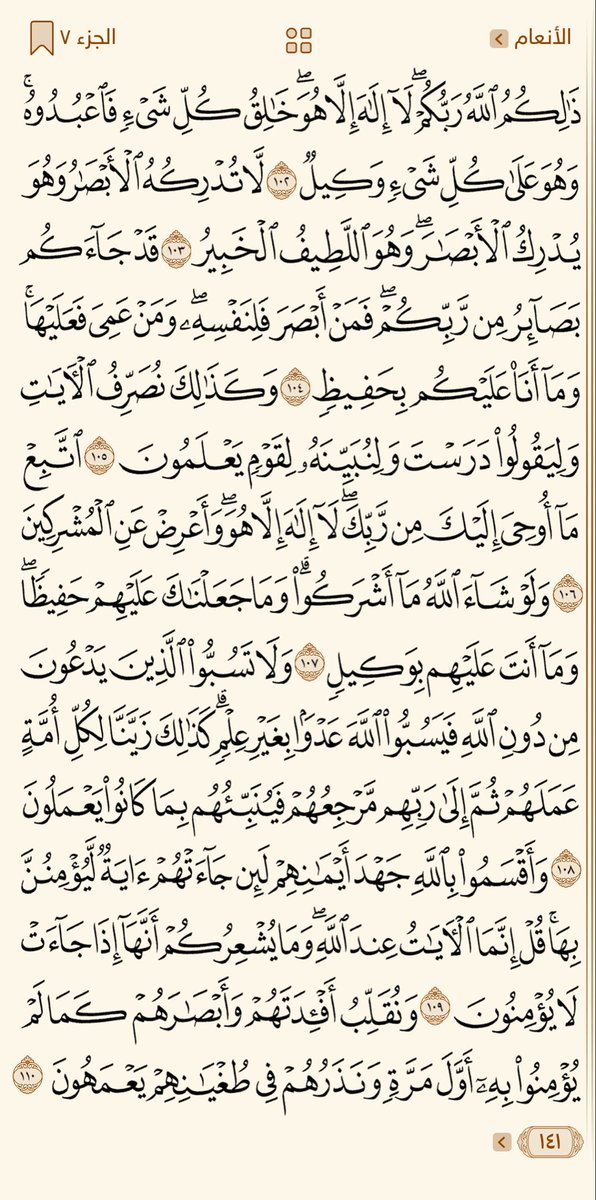 الأنعام الجزء ٧
ذَٰلِكُمُ ٱللَّهُ رَبُّكُمْۖ لَآ إِلَٰهَ إِلَّا هُوَۖ خَٰلِقُ كُلِّ شَىْءٍ فَٱعْبُدُوهُۚ
وَهُوَ عَلَىٰ كُلِّ شَىْءٍ وَكِيلٌ ١٠٢ لَّا تُدْرِكُهُ ٱلْأَبْصَٰرُ وَهُوَ
يُدْرِكُ ٱلْأَبْصَٰرَۖ وَهُوَ ٱللَّطِيفُ ٱلْخَبِيرُ ١٠٣ قَدْ جَآءَكُم
بَصَآئِرُ مِن رَّبِّكُمْۖ فَمَنْ أَبْصَرَ فَلِنَفْسِهِۦۖ وَمَنْ عَمِىَ فَعَلَيْهَاۚ
وَمَآ أَنَا۠ عَلَيْكُم بِحَفِيظٍ ١٠٤ وَكَذَٰلِكَ نُصَرِّفُ ٱلْءَايَٰتِ
وَلِيَقُولُوا۟ دَرَسْتَ وَلِنُبَيِّنَهُۥ لِقَوْمٍ يَعْلَمُونَ ١٠٥ ٱتَّبِعْ
مَآ أُوحِىَ إِلَيْكَ مِن رَّبِّكَۖ لَآ إِلَٰهَ إِلَّا هُوَۖ وَأَعْرِضْ عَنِ ٱلْمُشْرِكِينَ
١٠٦ وَلَوْ شَآءَ ٱللَّهُ مَآ أَشْرَكُوا۟ۗ وَمَا جَعَلْنَٰكَ عَلَيْهِمْ حَفِيظًاۖ
وَمَآ أَنتَ عَلَيْهِم بِوَكِيلٍ ١٠٧ وَلَا تَسُبُّوا۟ ٱلَّذِينَ يَدْعُونَ
مِن دُونِ ٱللَّهِ فَيَسُبُّوا۟ ٱللَّهَ عَدْوًۢا بِغَيْرِ عِلْمٍۗ كَذَٰلِكَ زَيَّنَّا لِكُلِّ أُمَّةٍ
عَمَلَهُمْ ثُمَّ إِلَىٰ رَبِّهِم مَّرْجِعُهُمْ فَيُنَبِّئُهُم بِمَا كَانُوا۟ يَعْمَلُونَ
١٠٨ وَأَقْسَمُوا۟ بِٱللَّهِ جَهْدَ أَيْمَٰنِهِمْ لَئِن جَآءَتْهُمْ ءَايَةٌ لَّيُؤْمِنُنَّ
بِهَاۚ قُلْ إِنَّمَا ٱلْءَايَٰتُ عِندَ ٱللَّهِۖ وَمَا يُشْعِرُكُمْ أَنَّهَآ إِذَا جَآءَتْ
لَا يُؤْمِنُونَ ١٠٩ وَنُقَلِّبُ أَفْـِٔدَتَهُمْ وَأَبْصَٰرَهُمْ كَمَا لَمْ
يُؤْمِنُوا۟ بِهِۦٓ أَوَّلَ مَرَّةٍ وَنَذَرُهُمْ فِى طُغْيَٰنِهِمْ يَعْمَهُونَ ١١٠
١٤١